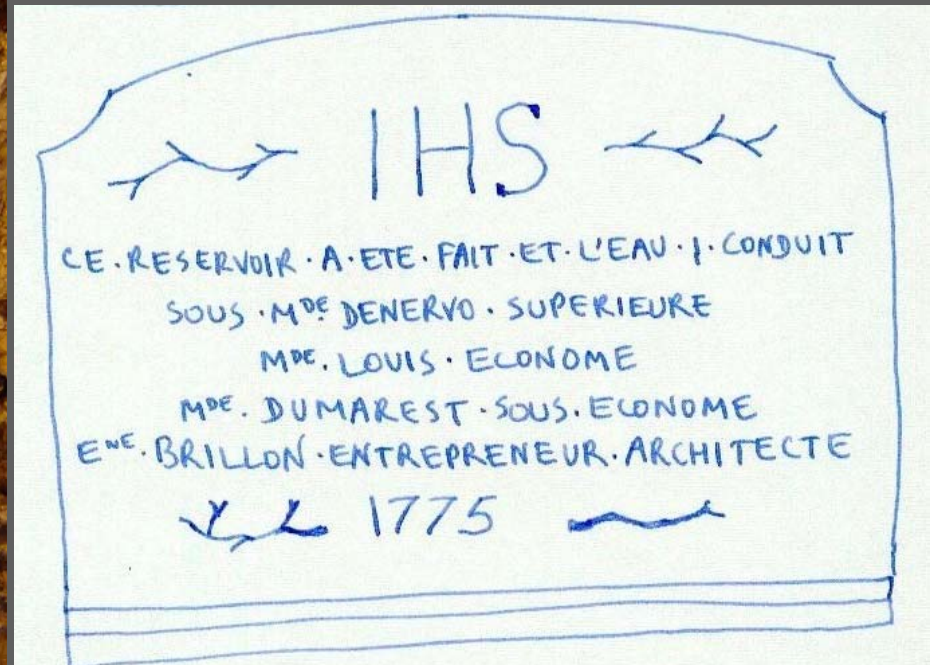 IHS
CE·RESERVOIR·A·ETE·FAIT·ET·L'EAU·I·CONDUIT
SOUS·MDE DENERVO·SUPERIEURE
MDE·LOUIS·ECONOME
MDE·DUMAREST·SOUS·ECONOME
ENE·BRILLON·ENTREPRENEUR·ARCHITECTE
1775